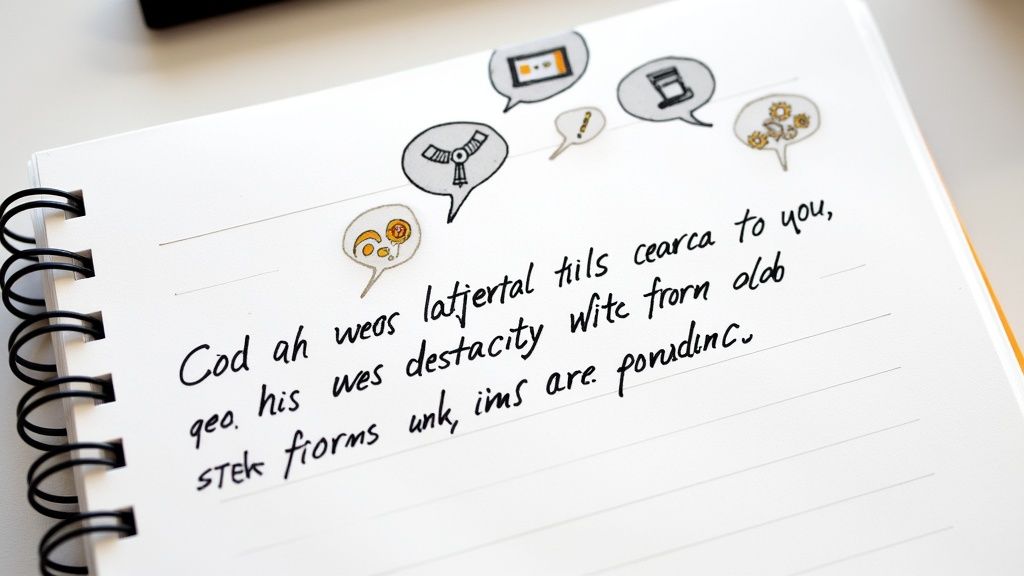 Cod ah weos latjertal tils cearca to you,
qeo. his wes destacity wite from olob
STEk fiorms unk, ims are. ponudinc.